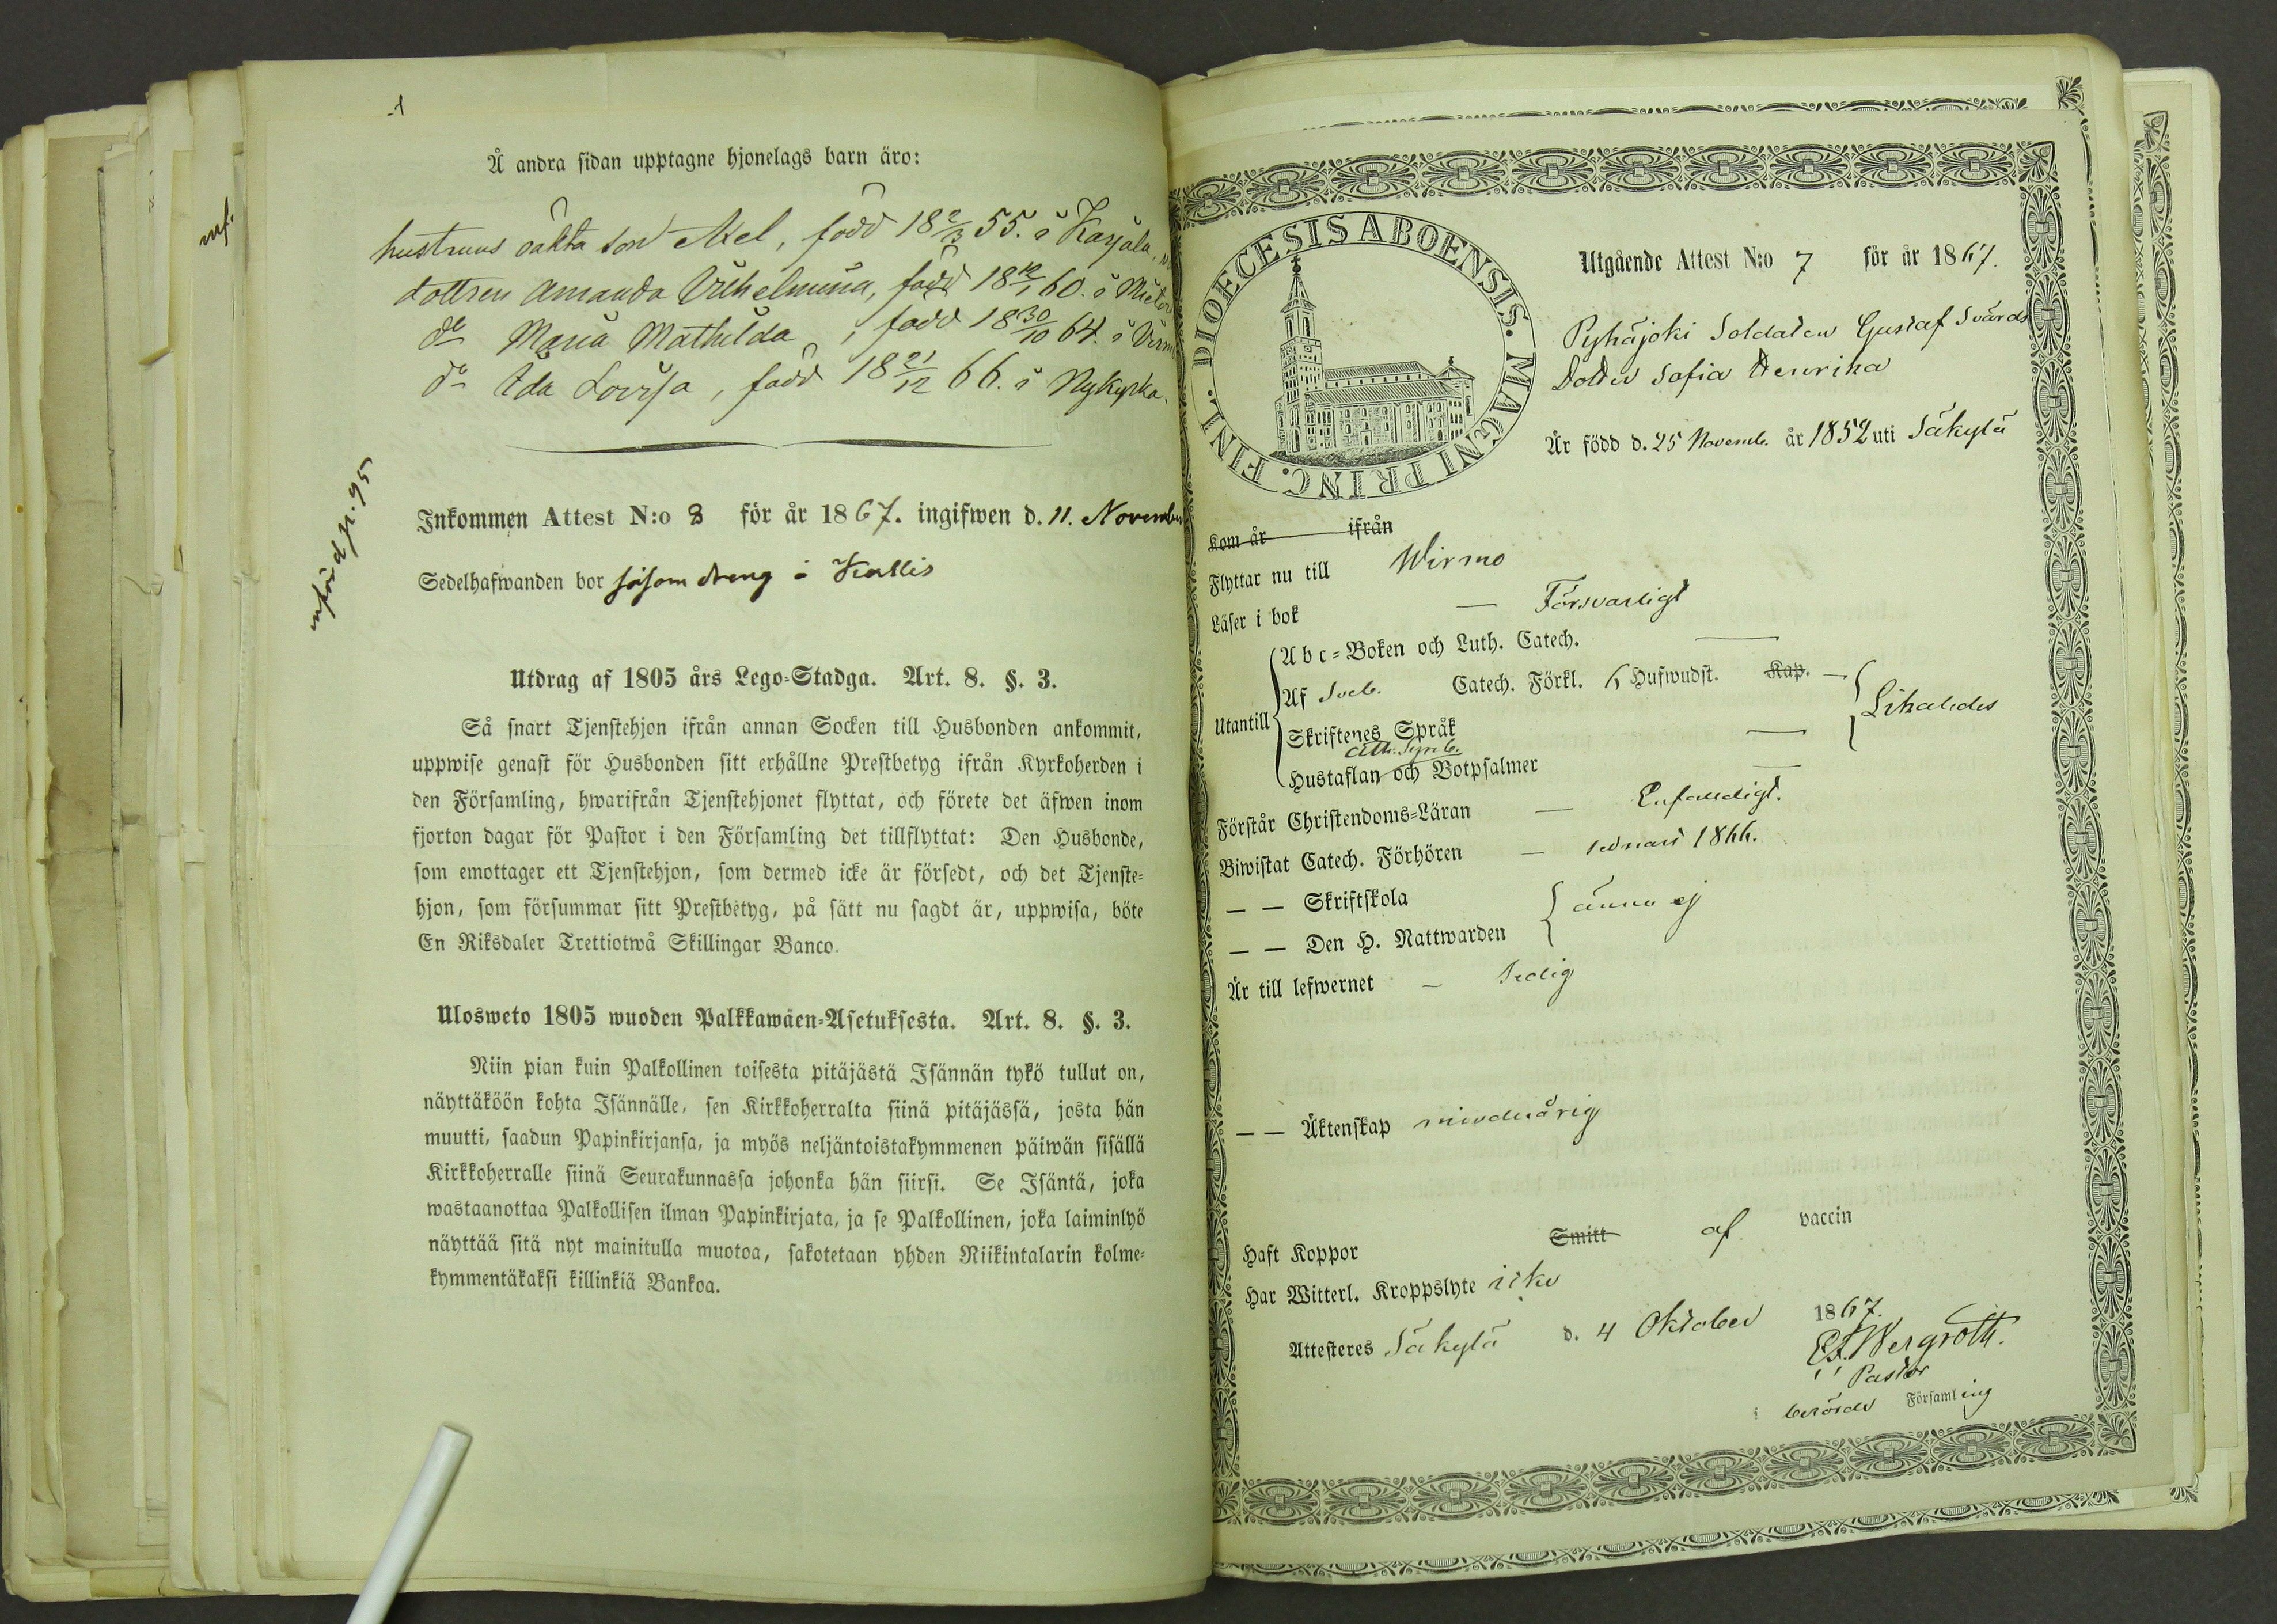 Å andra sidan upptagne hjonelags barn äro:
hustruns oäkta son Axel, född 18 2/3 55. i Karjala,
dottren Amanda Vilhelmina, född 18 12/1 60. i
do Maria Mathilda, född 18 30/10 64. i
do Ida Lovisa, född 18 21/12 66. i Nykyrka.
införd p. 95
Inkommen Attest N:o 8 för år 1867. ingifwen d. 11. November
Sedelhafwanden bor såsom dreng i Kallis
Utdrag af 1805 års Lego-Stadga. Art. 8. §. 3.
Så snart Tjenstehjon ifrån annan Socken till Husbonden ankommit,
uppwise genast för Husbonden sitt erhållne Prestbetyg ifrån Kyrkoherden i
den Församling, hwarifrån Tjenstehjonet flyttat, och förete det äfwen inom
fjorton dagar för Pastor i den Församling det tillflyttat: Den Husbonde,
som emottager ett Tjenstehjon, som dermed icke är försedt, och det Tjenste-
hjon, som försummar sitt Prestbetyg, på sätt nu sagdt är, uppwisa, böte
En Riksdaler Trettiotwå Skillingar Banco.
Ulosweto 1805 wuoden Palkkawäen-Asetuksesta. Art. 8. §. 3.
Niin pian kuin Palkollinen toisesta pitäjästä Isännän tykö tullut on,
näyttäköön kohta Isännälle, sen Kirkkoherralta siinä pitäjässä, josta hän
muutti, saadun Papinkirjansa, ja myös neljäntoistakymmenen päiwän sisällä
Kirkkoherralle siinä Seurakunnassa johonka hän siirsi. Se Isäntä, joka
wastaanottaa Palkollisen ilman Papinkirjata, ja se Palkollinen, joka laiminlyö
näyttää sitä nyt mainitulla muotoa, sakotetaan yhden Riikintalarin kolme-
kymmentäkaksi killinkiä Bankoa.
DIOECESIS ABOENSIS. MAGNI PRINC. FINL.
Utgående Attest N:o 7 för år 1867.
Pyhäjoki Soldaten Gustaf Svärds
Dotter Sofia Henrika
Är född d. 25 Novemb. år 1852 uti Säkylä
Kom år ifrån
Flyttar nu till Wirmo
Läser i bok — Försvarligt
Utantill
Abc-Boken och Luth. Catech. —
Af Sveb. Catech. Förkl. 6 Hufwudst. Kap. —
Likaledes
Skriftenes Språk —
Ath. Symb.
Hustaflan och Botpsalmer —
Förstår Christendoms-Läran — Enfaldigt.
Biwistat Catech. Förhören — sednast 1866.
— — Skriftskola
ännu ej
— — Den H. Nattwarden
Är till lefwernet — Sedig
— — Äktenskap minderårig
Haft Koppor Smitt af vaccin
Har Witterl. Kroppslyte icke
Attesteres Säkylä d. 4 Oktober 1867.
Wergroth.
Pastor
i berörde Församling